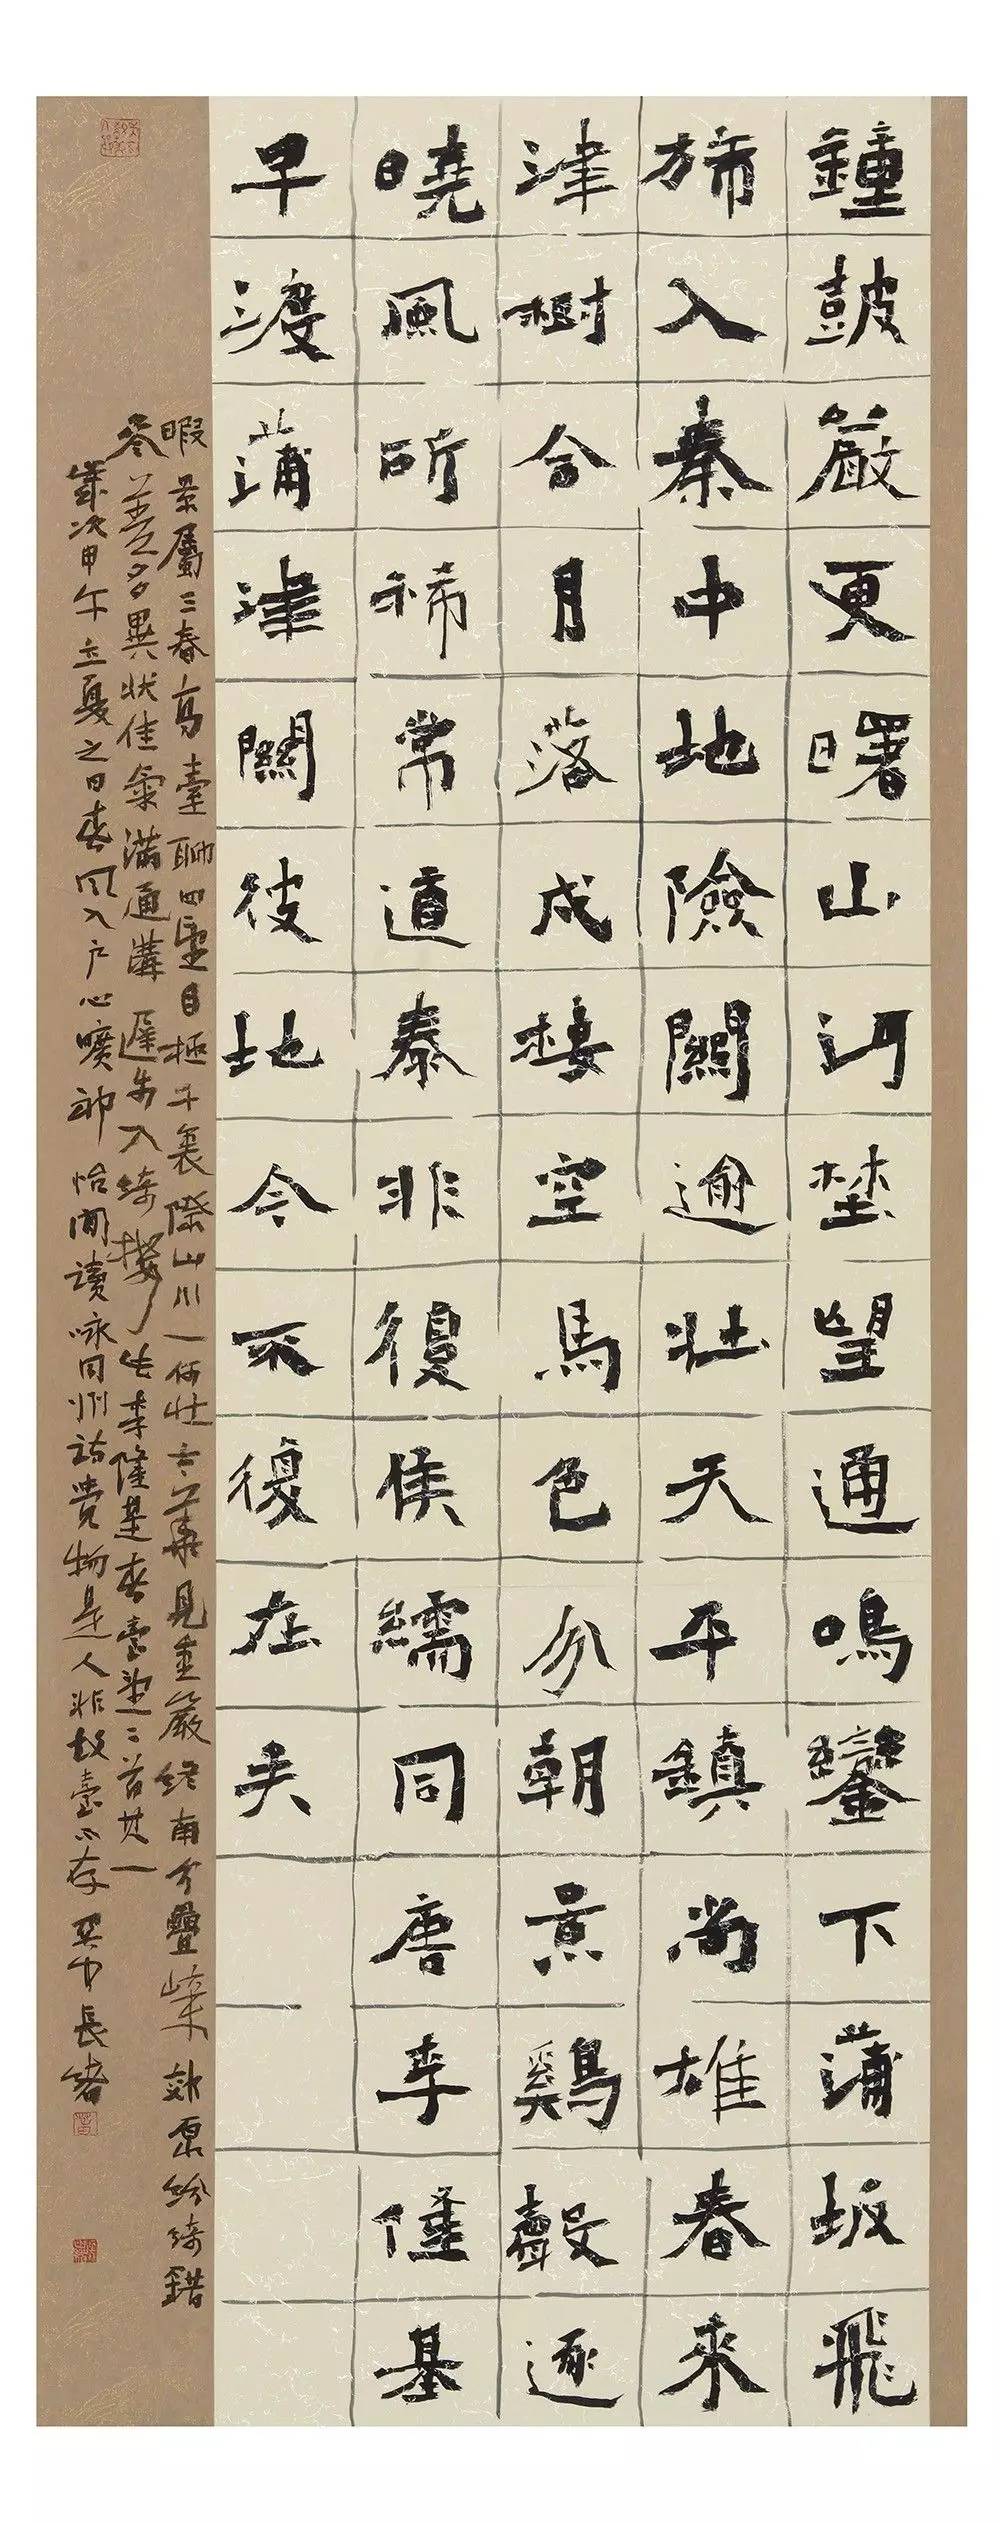 鍾鼓嚴更曙山河埜望通鳴鑾下蒲坂飛
斾入秦中地險關逾壯天平鎮尚雄春來
津樹合月落戍樓空馬色分朝景鷄聲逐
曉風所稀常道泰非復候繻同唐李隆基
早渡蒲津關彼地今不復在矣
暇景屬三春高臺聊四望目極千裏際山川一何壯太華見重巖終南分疊嶂郊原紛綺錯
參差多異狀佳氣滿通溝遲步入綺樓此李隆基春臺望二首其一
歲次甲午立夏之日春風入户心曠神怡閒讀咏同州詩物是人非故臺不存長緒